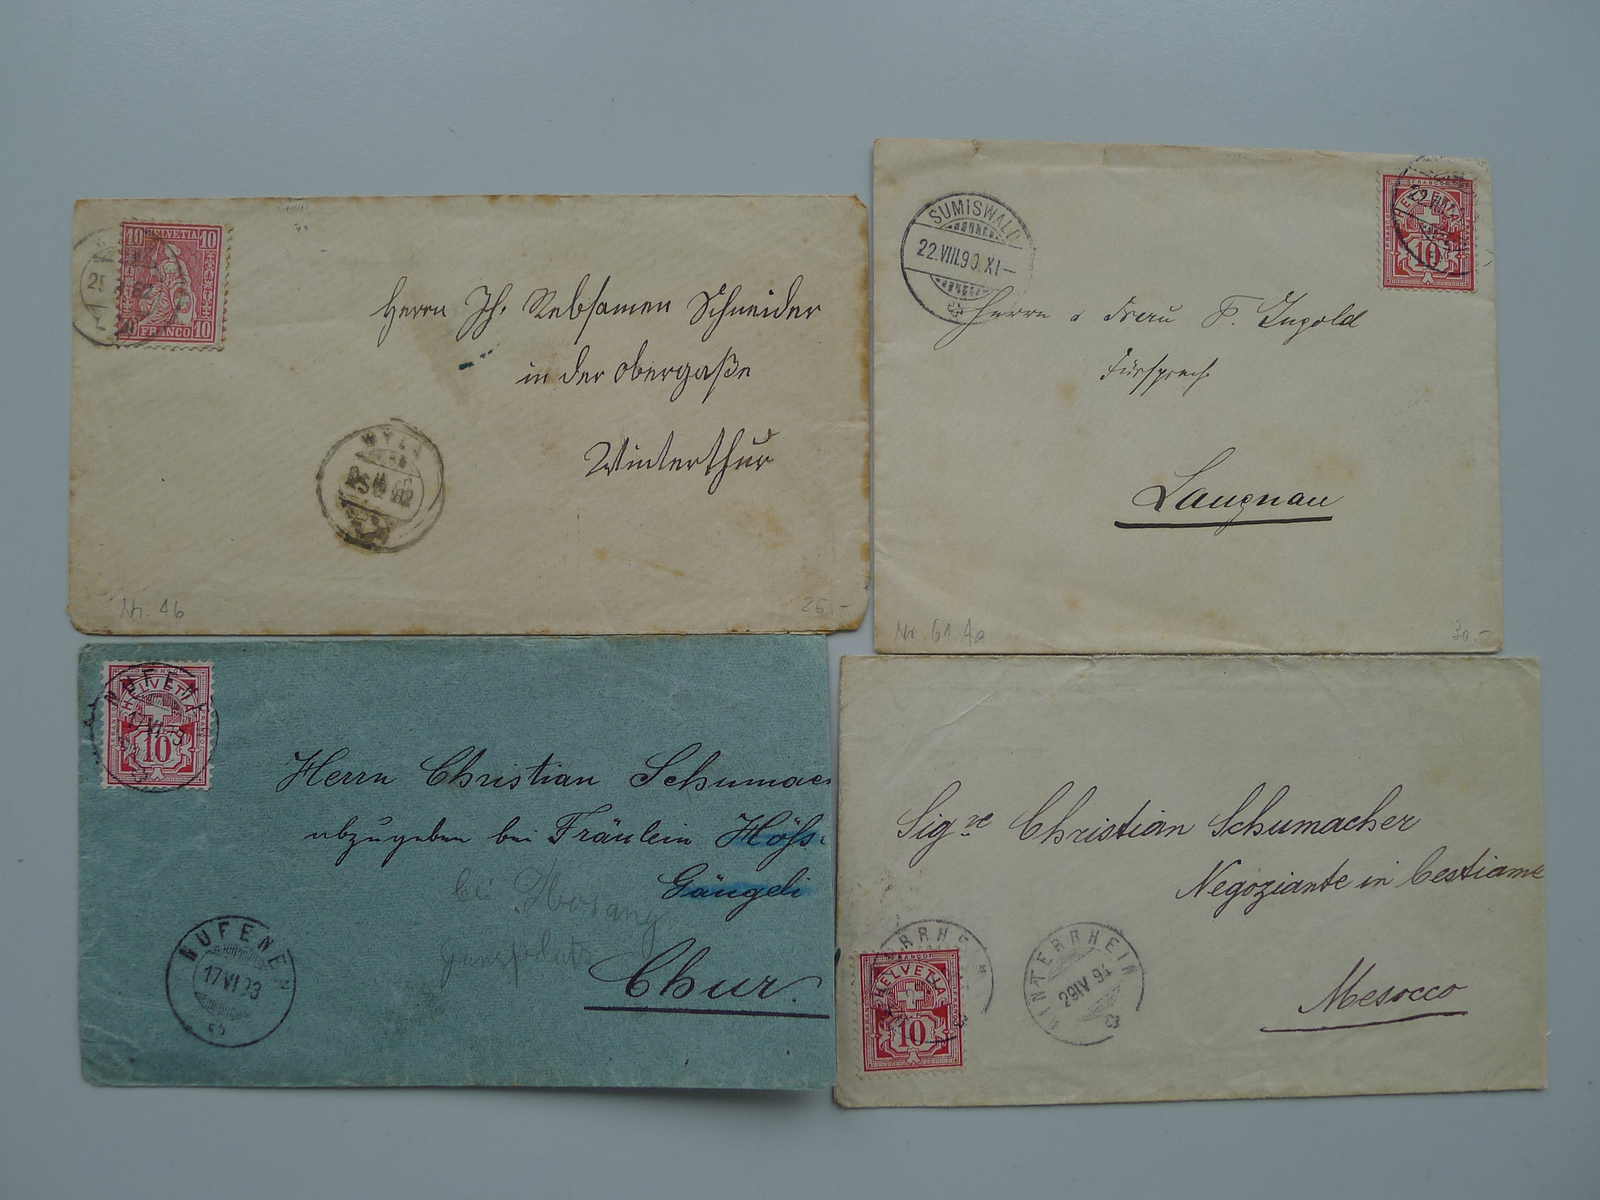 10 HELVETIA 10
10 FRANCO 10
Herrn Jh. Rebsamen Schneider
in der Obergaße
Winterthur
WYLA
Nr. 46
25.-
SUMISWALD
22.VIII.90.XI-
HELVETIA
10
Herrn & Frau F. Ingold
Fürsprech
Langnau
Nr. 61 Aa
30.-
NUFENEN
HELVETIA
10
Herrn Christian Schumac
abzugeben bei Fräulein Höß
Gäugeli
bei
Chur.
NUFENEN
17 VI 93
Sig.re Christian Schumacher
Negoziante in bestiame
Mesocco
HELVETIA
10
HINTERRHEIN
29 IV 94